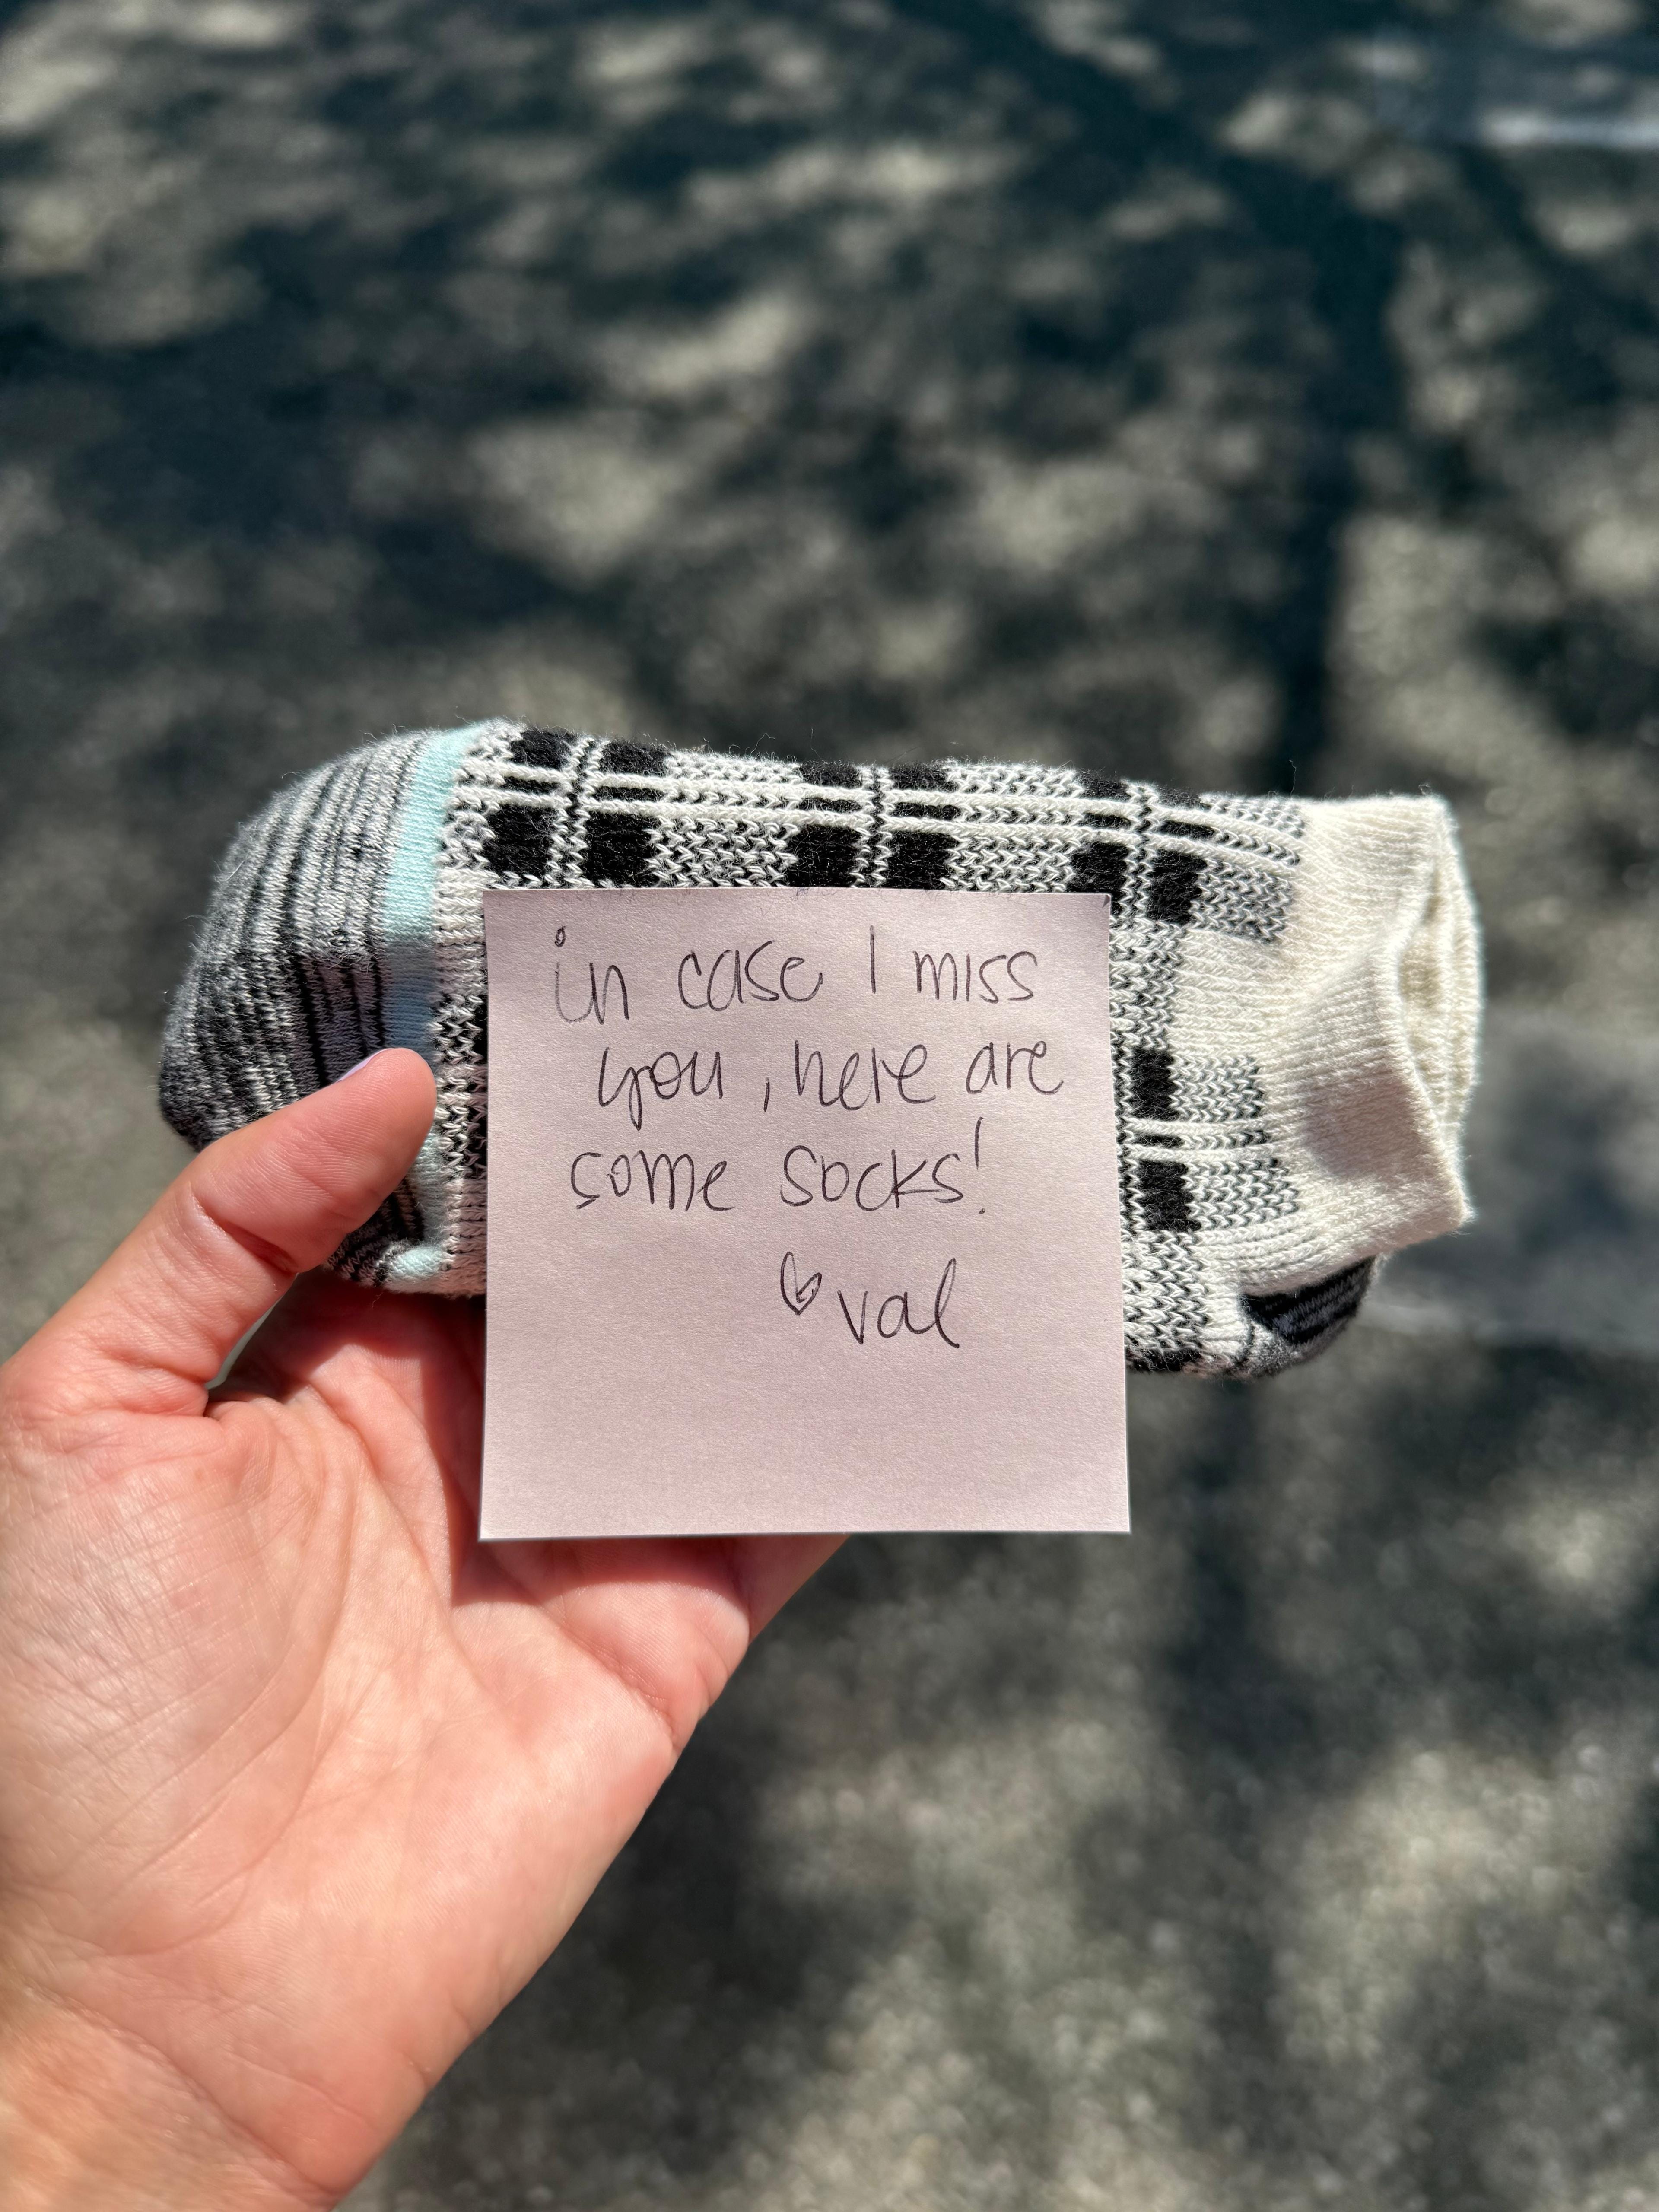 in case I miss
you, here are
some socks!
♡ val